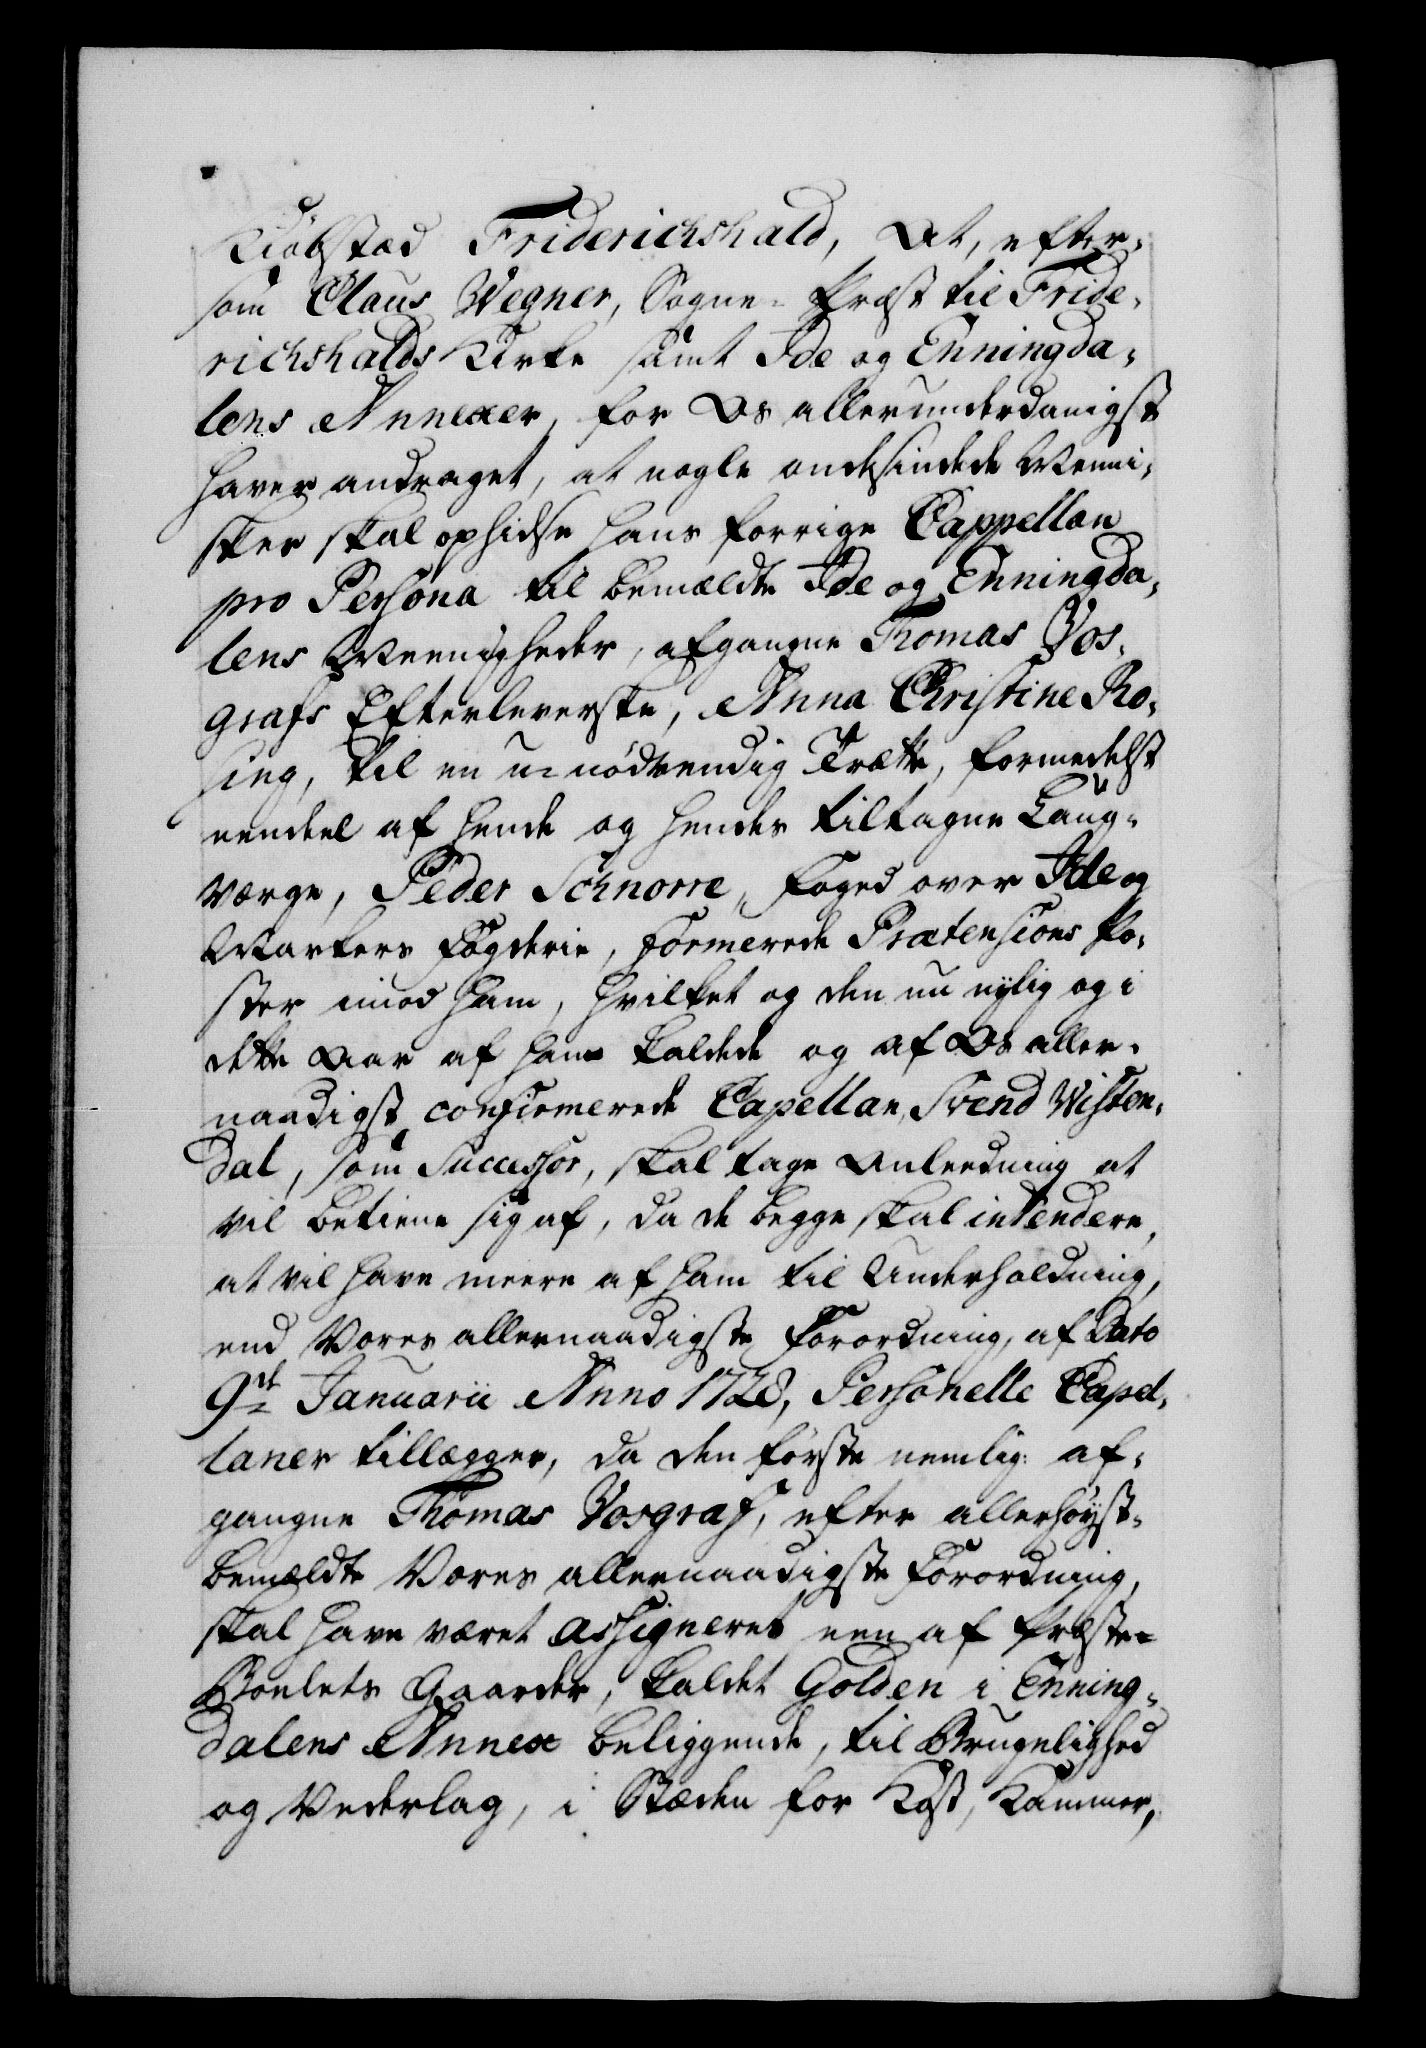 Kiøbstæd Friderichshald, At, efter-
som Claus Wegner, Sogne-Præst til Fride-
richshalds Kirke samt Ide og Enningda-
lens Annexer, for Os allerunderdanigst
haver andraget, at nogle ondesindede Menni-
sker skal ophidse hans forrige Cappellan
pro Persona til bemældte Ide og Enningda-
lens Meenigheder, afgangne Thomas Vos-
grafs Efterleverske, Anna Christine Ro-
sing, til en u-nødvendig Trætte, formedelst
eendeel af hende og hendes tiltagne Laug-
værge, Peder Schnorre, Foged over Ide og
Markers Fogderie, formerede Prætensions Po-
ster imod ham, hvilket og den nu nylig og i
dette Aar af ham kaldede og af Os aller-
naadigst confirmerede Capellan, Svend Wisten-
dal, som Successor, skal tage Anleedning at
vil betiene sig af, da de begge skal intendere,
at vil have meere af ham til Underholdning,
end Vores allernaadigste Forordning, af Dato
9de Januarii Anno 1728, Personelle Capel-
laner tillægger, da den første nemlig: af-
gangne Thomas Vosgraf, efter allerhøyst-
bemældte Vores allernaadigste Forordning,
skal have været assigneret een af Præste-
Boelets Gaarder, kaldet Golden i Enning-
dalens Annex beliggende, til Brugelighed
og Vederlag, i Stæden for Kost, Kammer,